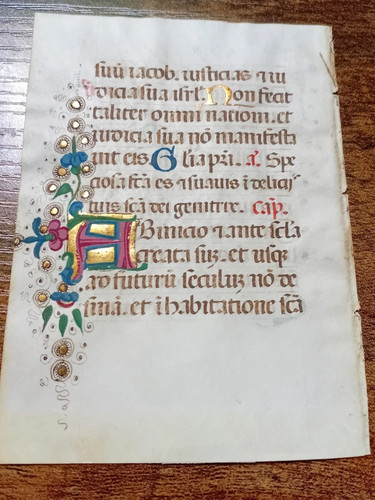 suū iacob. iusticias ⁊ iu
dicia sua isrl. Non fecit
taliter omni nationi. et
iudicia sua nō manifesta
uit eis. Glīa pr̄i. a. Spe
ciosa fc̄a es ⁊ suauis ī delicijs
tuis sc̄a dei genitrix. Cap.
AB inicio ⁊ ante scl̄a
creata suȝ. et usqȝ
ad futurū seculuȝ nō de
sinā. et ī habitatione sc̄ā